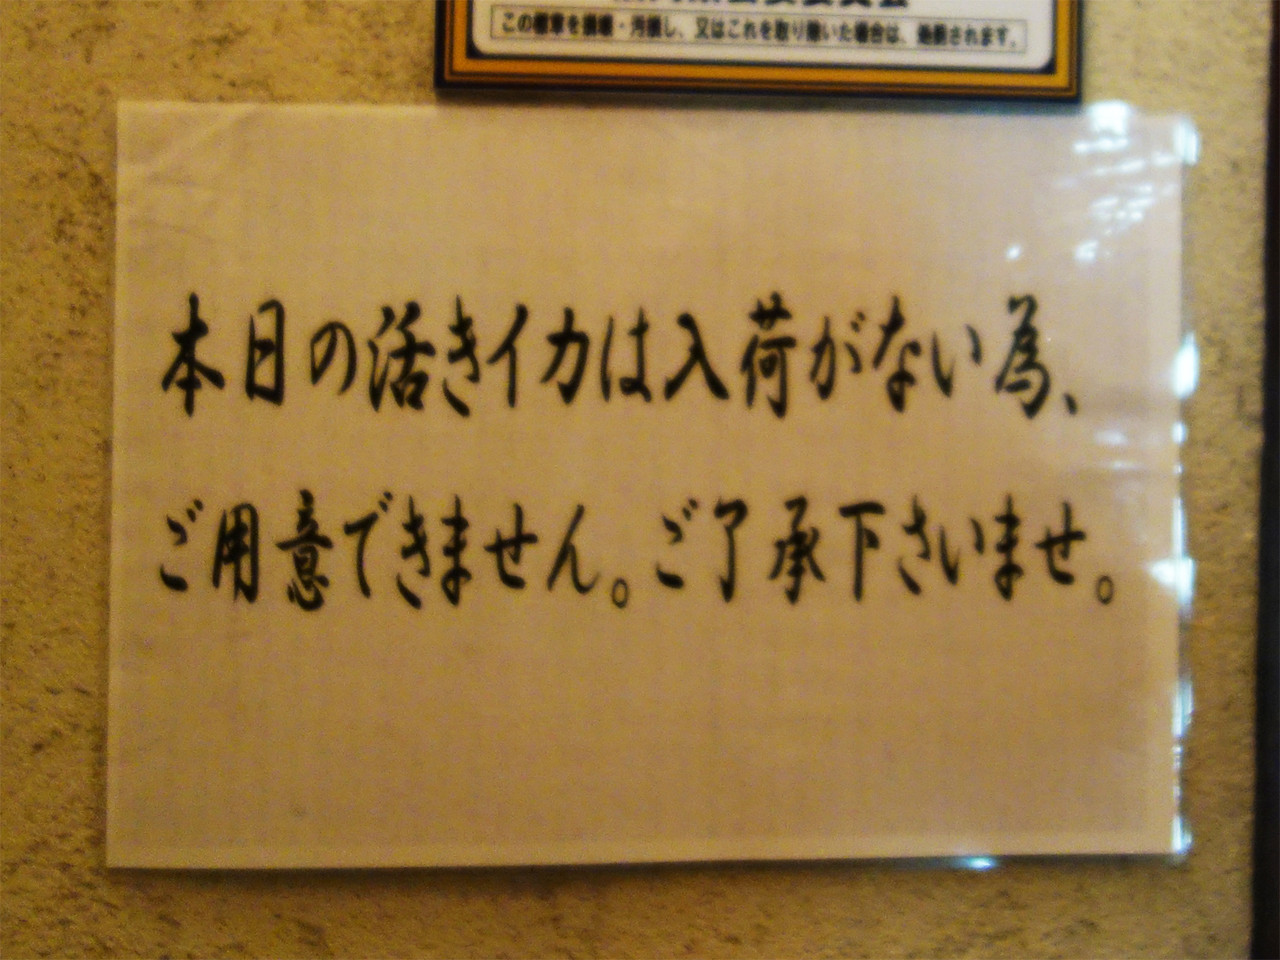 この標章を損壊・汚損し、又はこれを取り除いた場合は、処罰されます。
本日の活きイカは入荷がない為、
ご用意できません。ご了承下さいませ。